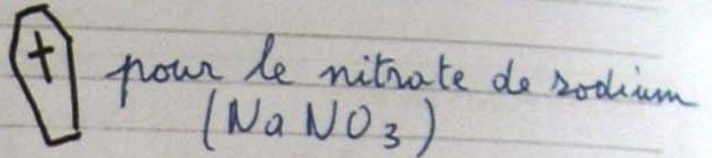 pour le nitrate de sodium
(NaNO3)